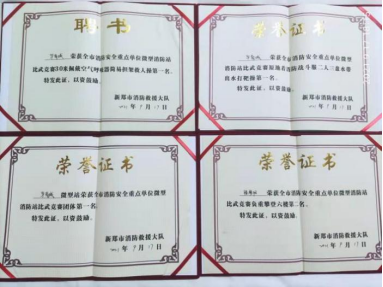 聘书
荣获全市消防安全重点单位微型消防站
比武竞赛30米佩戴空气呼吸器简易担架救人操第一名。
特发此证，以资鼓励。
新郑市消防救援大队
荣誉证书
荣获全市消防安全重点单位微型
消防站比武竞赛原地着消防战斗服二人三盘水带
出水打靶操第一名。
特发此证，以资鼓励。
新郑市消防救援大队
荣誉证书
微型站荣获全市消防安全重点单位微型
消防站比武竞赛团体第一名。
特发此证，以资鼓励。
新郑市消防救援大队
荣誉证书
荣获全市消防安全重点单位微型消防
站比武竞赛负重攀登六楼第二名。
特发此证，以资鼓励。
新郑市消防救援大队